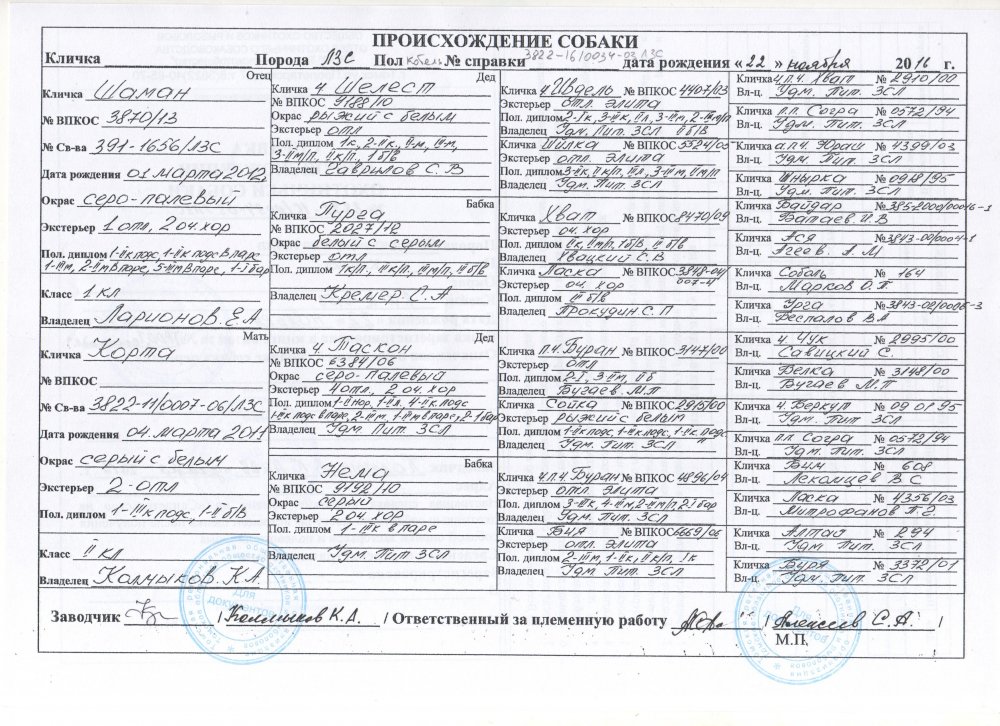 ПРОИСХОЖДЕНИЕ СОБАКИ
Кличка Порода ЛЗС Пол кобель № справки 3822-1610034-03 ЛЗС дата рождения « 22 » ноября 2016 г.
Отец
Кличка Шаман
№ ВПКОС 3870/13
№ Св-ва 391-1656/ЛЗС
Дата рождения 01 марта 2012
Окрас серо-палевый
Экстерьер 1 отл, 2 оч.хор
Пол. диплом
Класс 1 кл
Владелец Ларионов. Е.А
Мать
Кличка Корта
№ ВПКОС
№ Св-ва 3822-11/0007-06/ЛЗС
Дата рождения 04. марта 2011
Окрас серый с белым
Экстерьер 2-отл
Пол. диплом 1-III к подс, 1-II б/В
Класс II кл
Владелец Колмыков. К.А.
Дед
Кличка ч. Шелест
№ ВПКОС 9188/10
Окрас рыжий с белым
Экстерьер отл
Пол. диплом
Владелец Гаврилов С. В
Бабка
Кличка Пурга
№ ВПКОС 2027/12
Окрас белый с серым
Экстерьер отл
Пол. диплом
Владелец Кремер. С. А
Дед
Кличка ч. Таскон
№ ВПКОС 6384/06
Окрас серо-палевый
Экстерьер 4 отл, 2 оч. хор
Пол. диплом
Владелец Удм. Пит. ЗСЛ
Бабка
Кличка Нема
№ ВПКОС 9192/10
Окрас серый
Экстерьер 2 оч. хор
Пол. диплом 1-III к в паре
Владелец Удм. Пит. ЗСЛ
Кличка ч. Ивдель № ВПКОС 4407/03
Экстерьер отл. элита
Пол. диплом
Владелец Удм. Пит. ЗСЛ II б/В
Кличка Шилка № ВПКОС 5524/05
Экстерьер отл. элита
Пол. диплом
Владелец Удм. Пит. ЗСЛ
Кличка Хват № ВПКОС 8470/09
Экстерьер оч. хор
Пол. диплом
Владелец Хвацкий С. В
Кличка Ласка № ВПКОС 3848-04/007-4
Экстерьер оч. хор
Пол. диплом III б/В
Владелец Прокудин С. П
Кличка п.ч. Буран № ВПКОС 3147/00
Экстерьер отл
Пол. диплом 2-I, 3-II м, II б
Владелец Бугаев. М.П
Кличка Сойка № ВПКОС 2915/00
Экстерьер рыжий с белым
Пол. диплом
Владелец Удм. Пит. ЗСЛ
Кличка ч.п.ч. Буран № ВПКОС 4896/04
Экстерьер отл. элита
Пол. диплом
Владелец Удм. Пит. ЗСЛ
Кличка Бия № ВПКОС 6669/06
Экстерьер отл. элита
Пол. диплом
Владелец Удм. Пит. ЗСЛ
Кличка ч.п.ч. Хват № 2910/00
Вл-ц. Удм. Пит. ЗСЛ
Кличка п.п. Согра № 0572/94
Вл-ц. Удм. Пит. ЗСЛ
Кличка а.п.ч. Юраш № 4399/03
Вл-ц. Удм. Пит. ЗСЛ
Кличка Шнырка № 0918/95
Вл-ц. Удм. Пит. ЗСЛ
Кличка Байдар № 385-2000/00016-1
Вл-ц. Батаев И.В
Кличка Ася № 3843-00/0004-1
Вл-ц. Агеев. А. М
Кличка Соболь № 164
Вл-ц. Марков О. П
Кличка Урга № 3843-00/0006-3
Вл-ц. Беспалов В А
Кличка ч. Чук № 2995/00
Вл-ц. Савицкий С.
Кличка Белка № 3148/00
Вл-ц. Бугаев М. П
Кличка ч. Беркут № 0901 95
Вл-ц. Удм. Пит. ЗСЛ
Кличка п.п. Согра № 0572/94
Вл-ц. Удм. Пит. ЗСЛ
Кличка Бим № 608
Вл-ц. Лекомцев В С
Кличка Ласка № 4356/03
Вл-ц. Митрофанов П. Г.
Кличка Алтай № 294
Вл-ц. Удм Пит. ЗСЛ
Кличка Буря № 3372/01
Вл-ц. Удм. Пит. ЗСЛ
Заводчик / Колмыков К. А. / Ответственный за племенную работу / Алексеев С. А. /
М.П.
Для документов